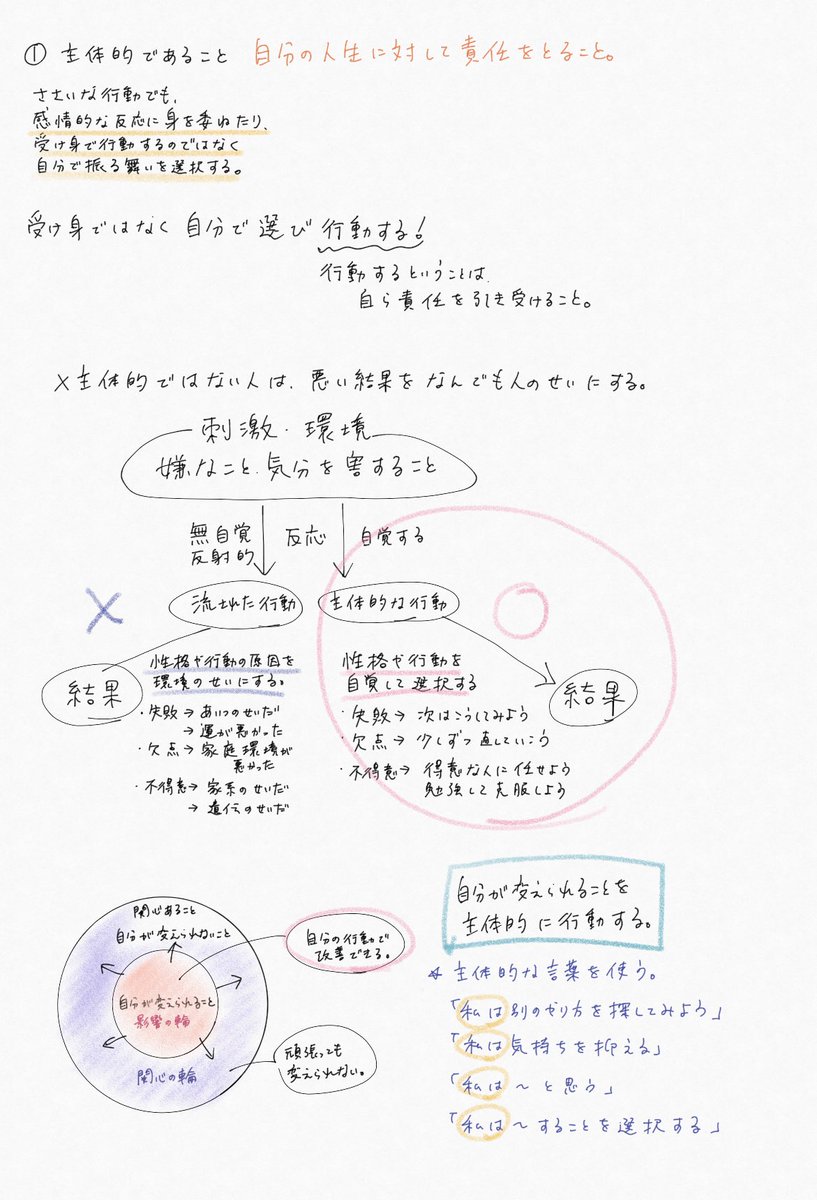 ① 主体的であること 自分の人生に対して責任をとること。
ささいな行動でも、
感情的な反応に身を委ねたり、
受け身で行動するのではなく
自分で振る舞いを選択する。
受け身ではなく自分で選び行動する!
行動するということは、
自ら責任を引き受けること。
×主体的ではない人は、悪い結果をなんでも人のせいにする。
刺激・環境
嫌なこと、気分を害すること
無自覚
反射的
反応
自覚する
×
流された行動
主体的な行動
結果
性格や行動の原因を
環境のせいにする。
・失敗→あいつのせいだ
→運が悪かった
・欠点→家庭環境が
悪かった
・不得意→家系のせいだ
→遺伝のせいだ
性格や行動を
自覚して選択する
・失敗→次はこうしてみよう
・欠点→少しずつ直していこう
・不得意→得意な人に任せよう
勉強して克服しよう
結果
関心あること
自分が変えられないこと
自分が変えられること
影響の輪
関心の輪
自分の行動で
改善できる。
頑張っても
変えられない。
自分が変えられることを
主体的に行動する。
☆主体的な言葉を使う。
「私は別のやり方を探してみよう」
「私は気持ちを抑える」
「私は〜と思う」
「私は〜することを選択する」